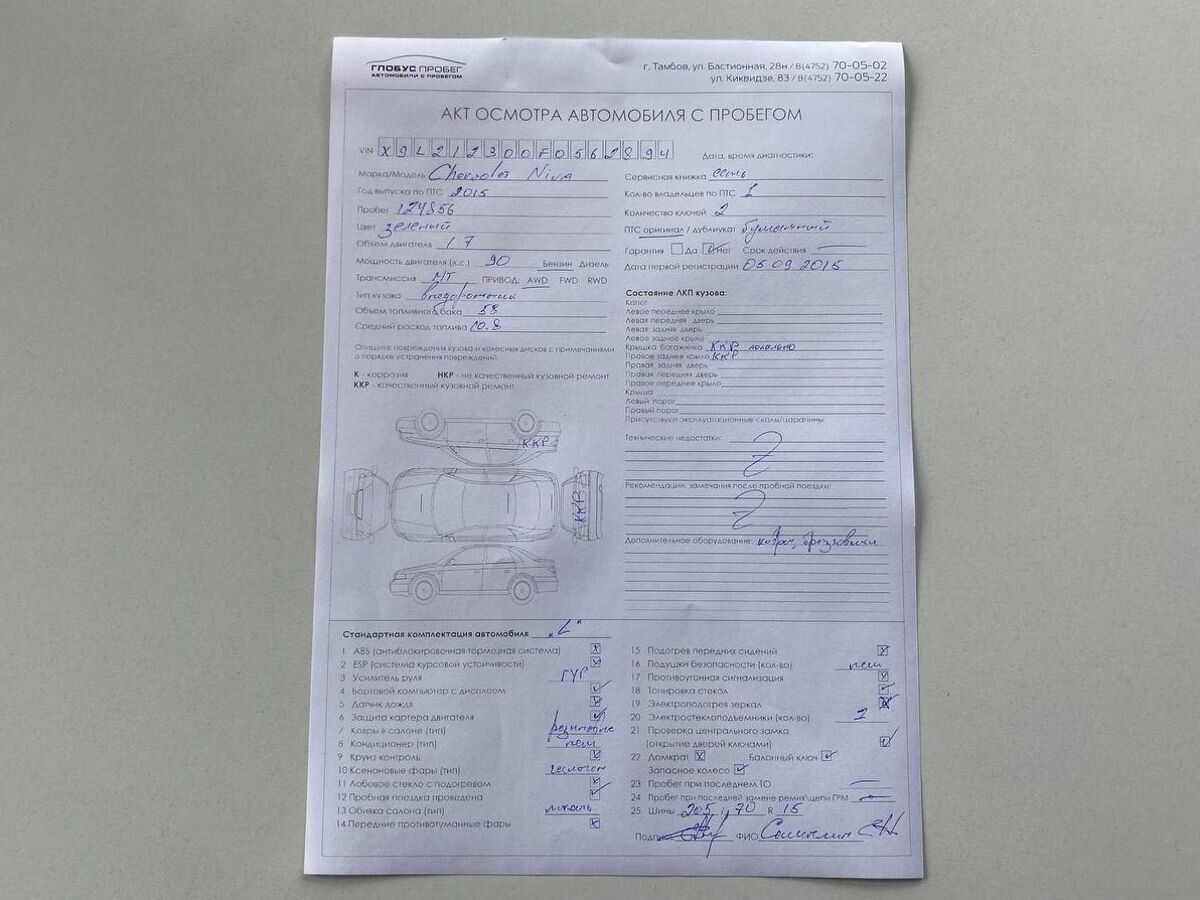 ГЛОБУС ПРОБЕГ
АВТОМОБИЛИ С ПРОБЕГОМ
г. Тамбов, ул. Бастионная, 28н / 8(4752) 70-05-02
ул. Киквидзе, 83 / 8(4752) 70-05-22
АКТ ОСМОТРА АВТОМОБИЛЯ С ПРОБЕГОМ
VIN X9L212300F0562894
Дата, время диагностики:
Марка/Модель Chevrolet Niva
Год выпуска по ПТС 2015
Пробег 124856
Цвет зеленый
Объем двигателя 1.7
Мощность двигателя (л.с.) 90 Бензин Дизель
Трансмиссия МТ ПРИВОД: AWD FWD RWD
Тип кузова внедорожник
Объем топливного бака 58
Средний расход топлива 10.8
Опишите повреждения кузова и колесных дисков с примечаниями
о порядке устранения повреждений
К - коррозия НКР - не качественный кузовной ремонт
ККР - качественный кузовной ремонт
ККР
ККР
Сервисная книжка есть
Кол-во владельцев по ПТС 1
Количество ключей 2
ПТС оригинал / дубликат бумажный
Гарантия Да Нет Срок действия
Дата первой регистрации 05.09.2015
Состояние ЛКП кузова:
Капот
Левое переднее крыло
Левая передняя дверь
Левая задняя дверь
Левое заднее крыло
Крышка багажника ККР локально
Правое заднее крыло ККР
Правая задняя дверь
Правая передняя дверь
Правое переднее крыло
Крыша
Левый порог
Правый порог
Присутствуют эксплуатационные сколы/царапины
Технические недостатки:
Рекомендации, замечания после пробной поездки:
Дополнительное оборудование: брызговики
Стандартная комплектация автомобиля "L"
1 ABS (антиблокировочная тормозная система) x
2 ESP (система курсовой устойчивости)
3 Усилитель руля ГУР
4 Бортовой компьютер с дисплеем
5 Датчик дождя
6 Защита картера двигателя
7 Ковры в салоне (тип) резиновые
8 Кондиционер (тип) нет
9 Круиз контроль
10 Ксеноновые фары (тип) галоген
11 Лобовое стекло с подогревом
12 Пробная поездка проведена
13 Обивка салона (тип) ткань
14 Передние противотуманные фары x
15 Подогрев передних сидений
16 Подушки безопасности (кол-во) нет
17 Противоугонная сигнализация
18 Тонировка стекол
19 Электроподогрев зеркал
20 Электростеклоподъемники (кол-во) 2
21 Проверка центрального замка
(открытие дверей ключами)
22 Домкрат x Балонный ключ
Запасное колесо
23 Пробег при последнем ТО
24 Пробег при последней замене ремня\цепи ГРМ
25 Шины 205 / 70 R 15
Подпись ФИО